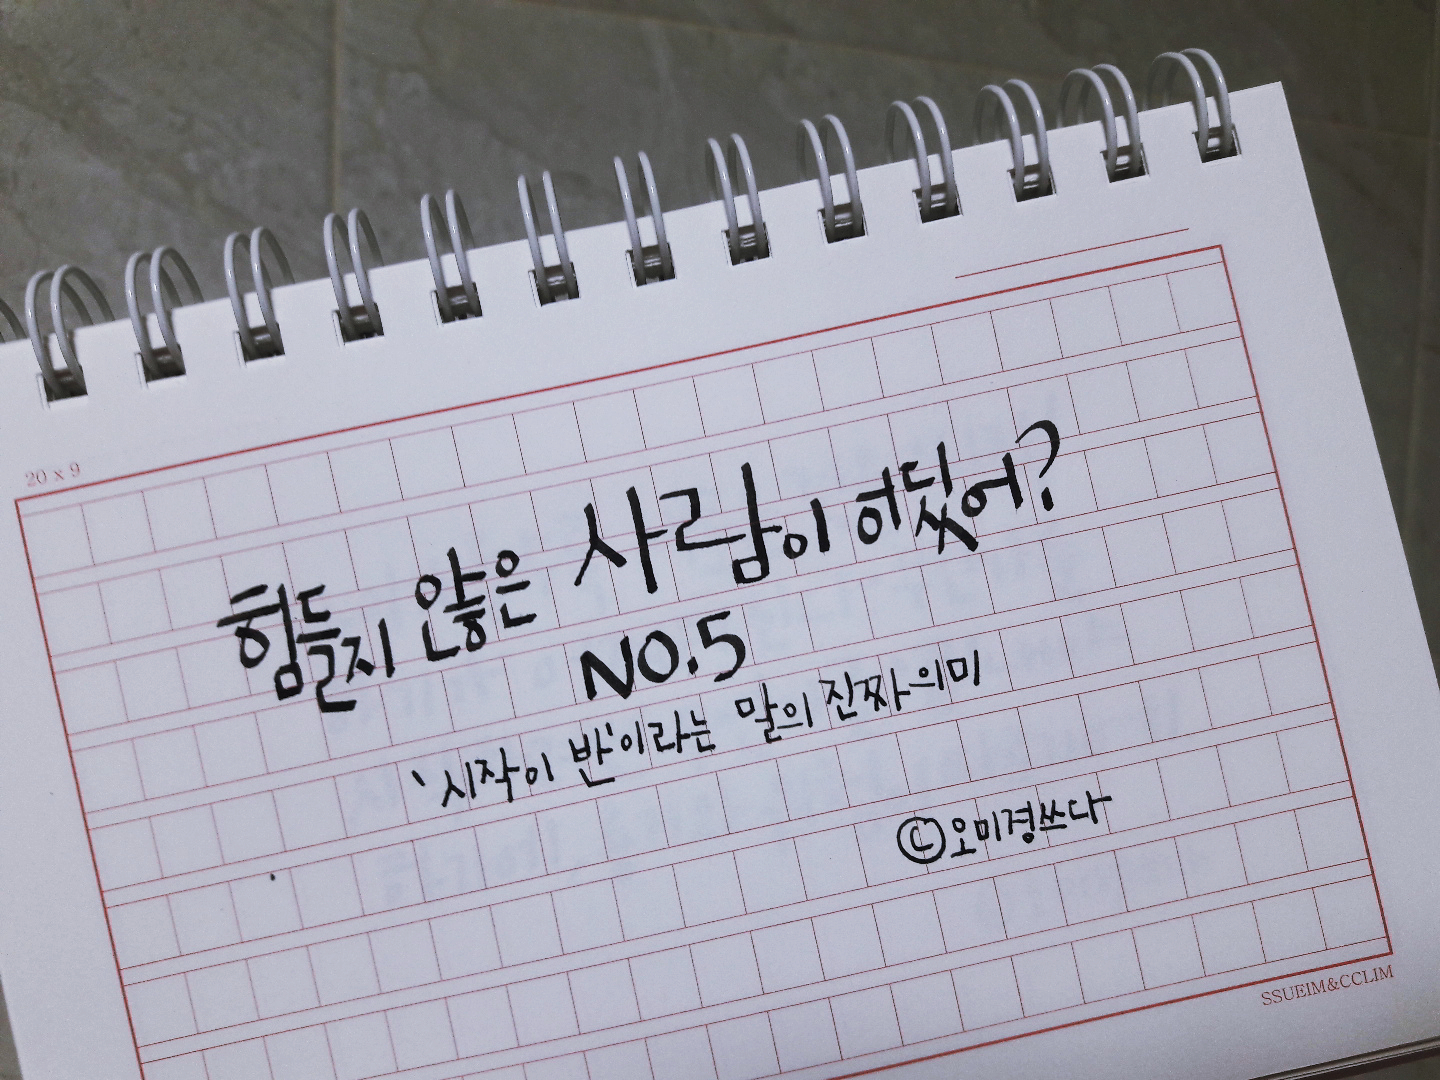 20 x 9
힘들지 않은 사람이 어딨어?
NO.5
'시작이 반'이라는 말의 진짜 의미
ⓒ오미경쓰다
SSUEIM&CCLIM